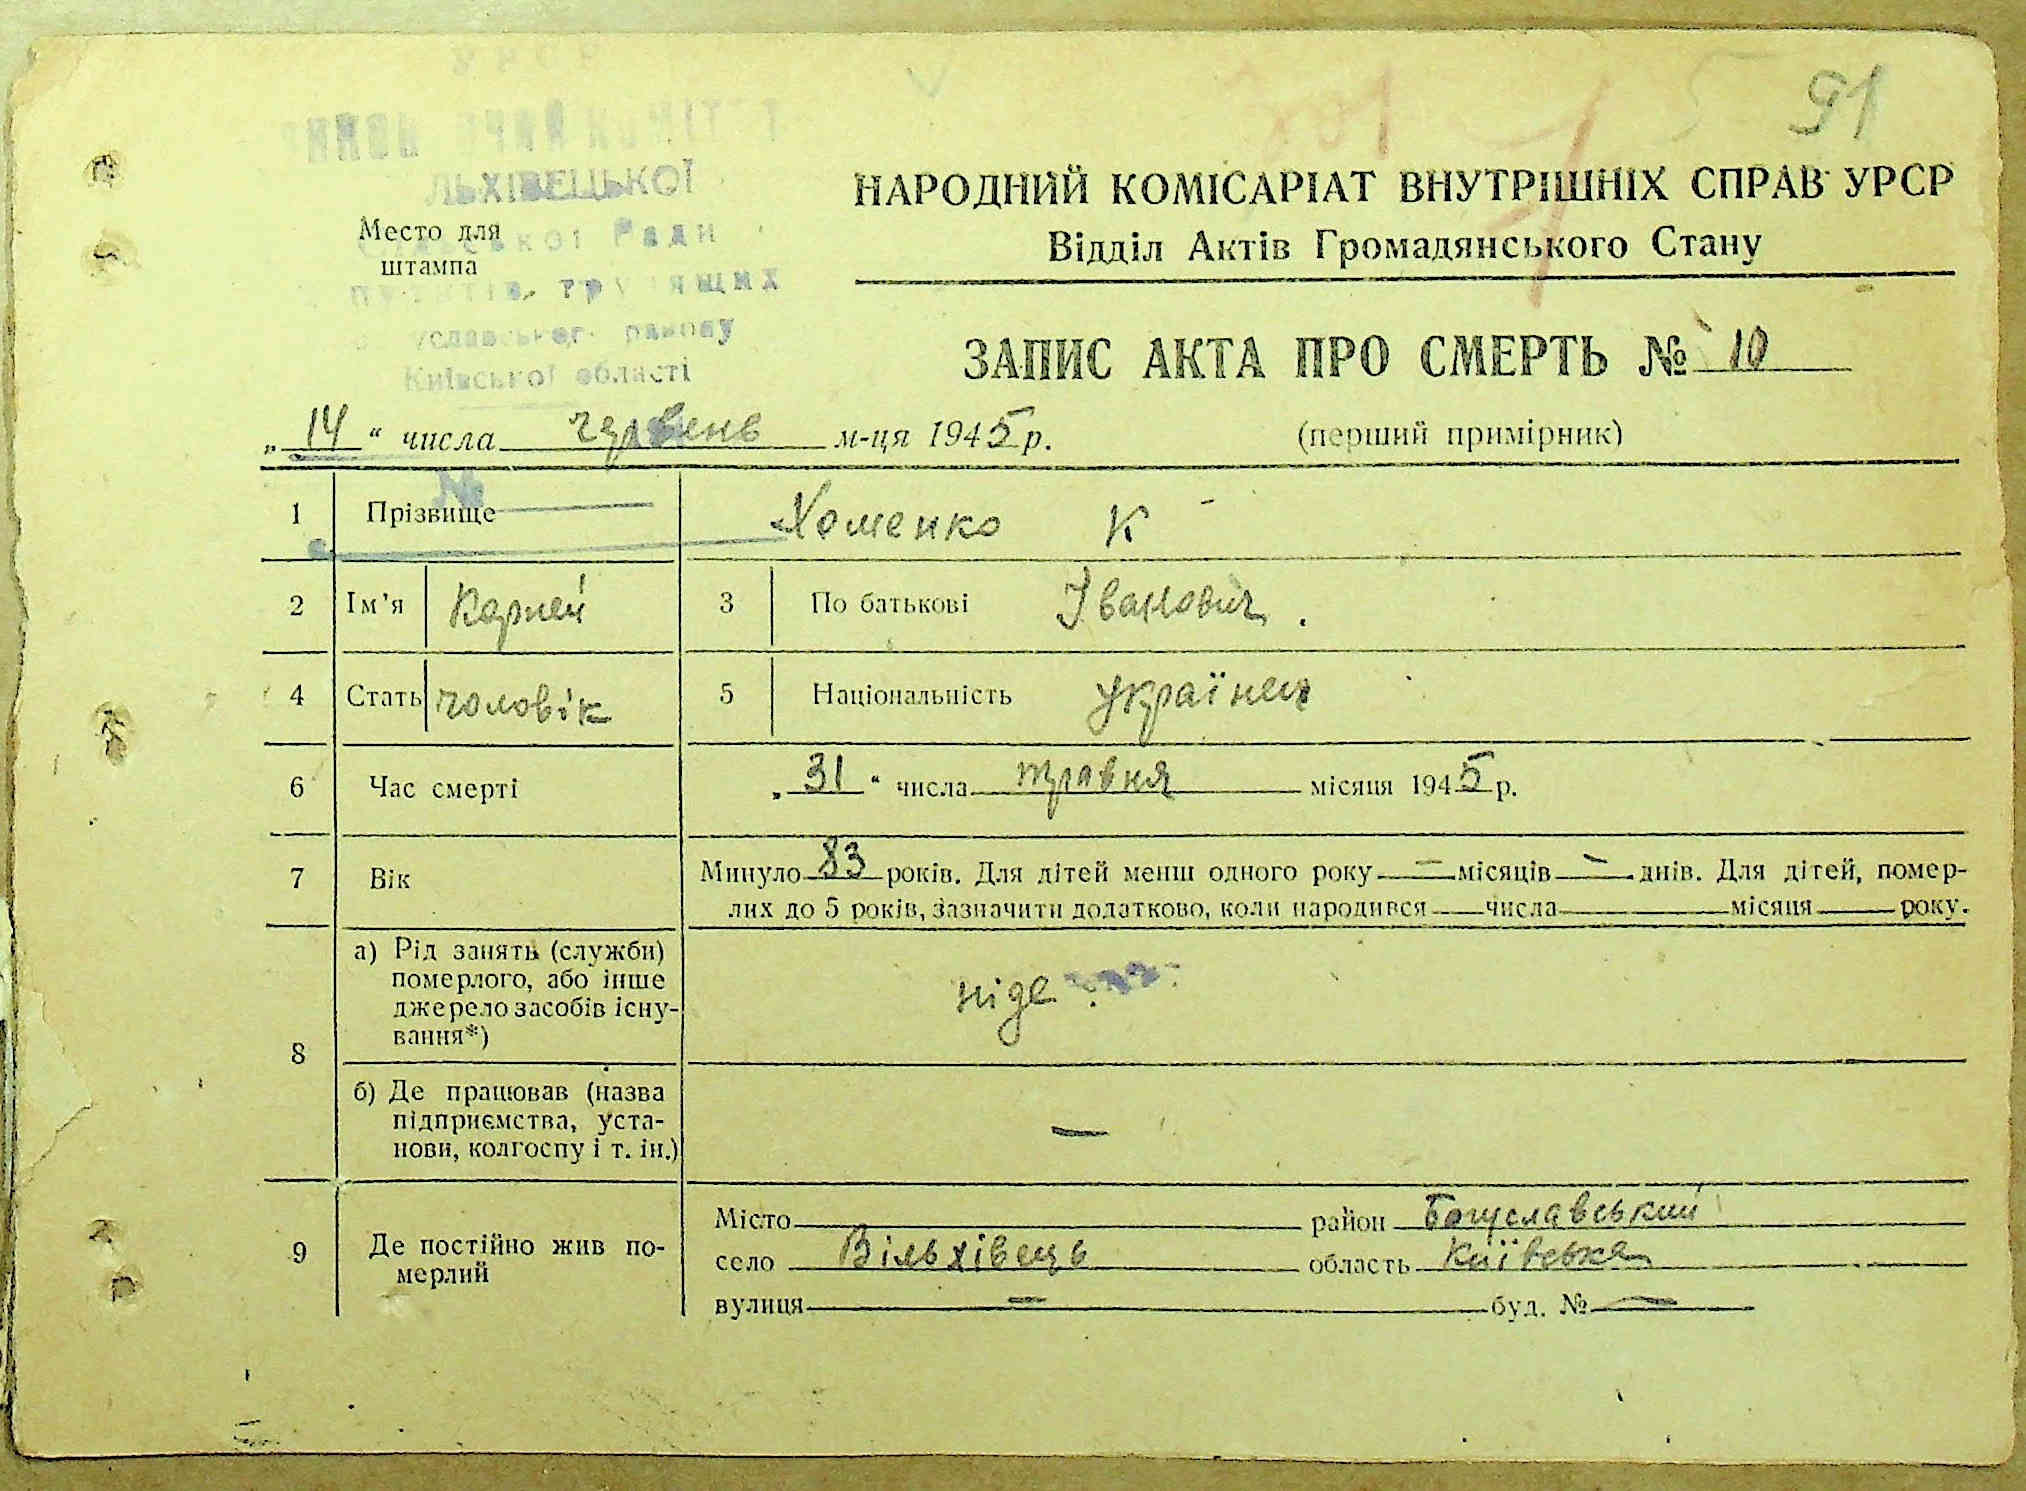 91
ЛЬХІВЕЦЬКОЇ
Ради
трудящих
району
Київської області
Место для
штампа
НАРОДНИЙ КОМІСАРІАТ ВНУТРІШНІХ СПРАВ УРСР
Відділ Актів Громадянського Стану
ЗАПИС АКТА ПРО СМЕРТЬ № 10
„14“ числа червень м-ця 1945 р.
(перший примірник)
№
1 Прізвище Хоменко К
2 Ім'я Корней 3 По батькові Іванович.
4 Стать чоловік 5 Національність українец
6 Час смерті „31“ числа травня місяця 1945 р.
7 Вік Минуло 83 років. Для дітей менш одного року — місяців — днів. Для дітей, помер-
лих до 5 років, зазначити додатково, коли народився числа місяця року.
8 а) Рід занять (служби)
померлого, або інше
джерело засобів існу-
вання*)
ніде
б) Де працював (назва
підприємства, уста-
нови, колгоспу і т. ін.)
—
9 Де постійно жив по-
мерлий
Місто район Богуславський
село Вільхівець область Київська
вулиця — буд. № —